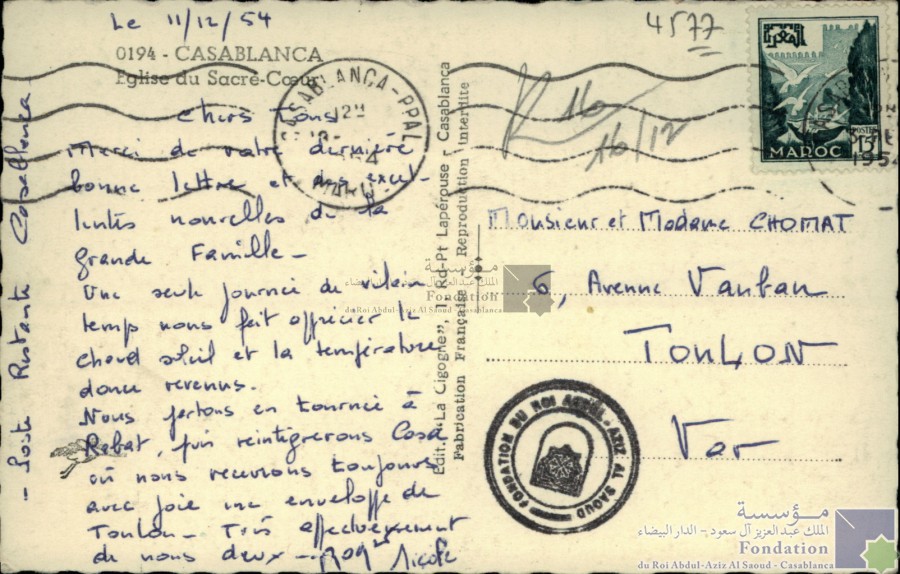 Le 11/12/54
4577
0194 - CASABLANCA
Eglise du Sacré-Cœur
CASABLANCA-PPAL
MAROC
POSTES
15F
1954
16
16/12
Chers Tous
Merci de votre dernière
bonne lettre et des excel-
lentes nouvelles de la
grande Famille -
Une seule journée de vilain
temps nous fait apprécier le
chaud soleil et la température
douce revenus.
Nous partons en tournée à
Rabat, puis reintégrerons Casa
où nous recevrons toujours
avec joie une enveloppe de
Toulon - Très affectueusement
de nous deux - Rogr Nicole
- Poste Restante Casablanca
Edit. "La Cigogne", 1, Rd-Pt Lapérouse - Casablanca
Fabrication Française - Reproduction interdite
Monsieur et Madame CHOMAT
6, Avenue Vauban
TOULON
Var
مؤسسة
الملك عبد العزيز آل سعود - الدار البيضاء
Fondation
du Roi Abdul-Aziz Al Saoud - Casablanca
FONDATION DU ROI ABDUL-AZIZ AL SAOUD
مؤسسة
الملك عبد العزيز آل سعود - الدار البيضاء
Fondation
du Roi Abdul-Aziz Al Saoud - Casablanca